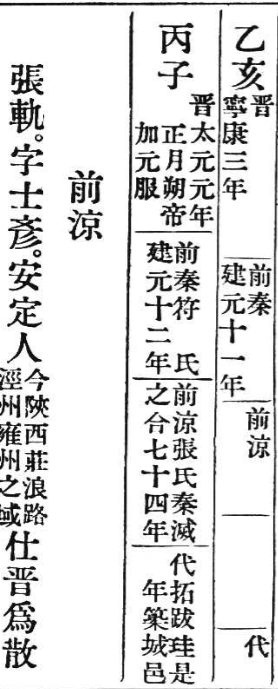 乙亥
晉
寧康三年
前秦
建元十一年
前涼
代
丙子
晉太元元年
正月朔帝
加元服
前秦苻氏
建元十二年
前涼張氏秦滅
之合七十四年
代拓跋珪是
年築城邑
前涼
張軌。字士彥。安定人今陝西莊浪路涇州雍州之域仕晉爲散